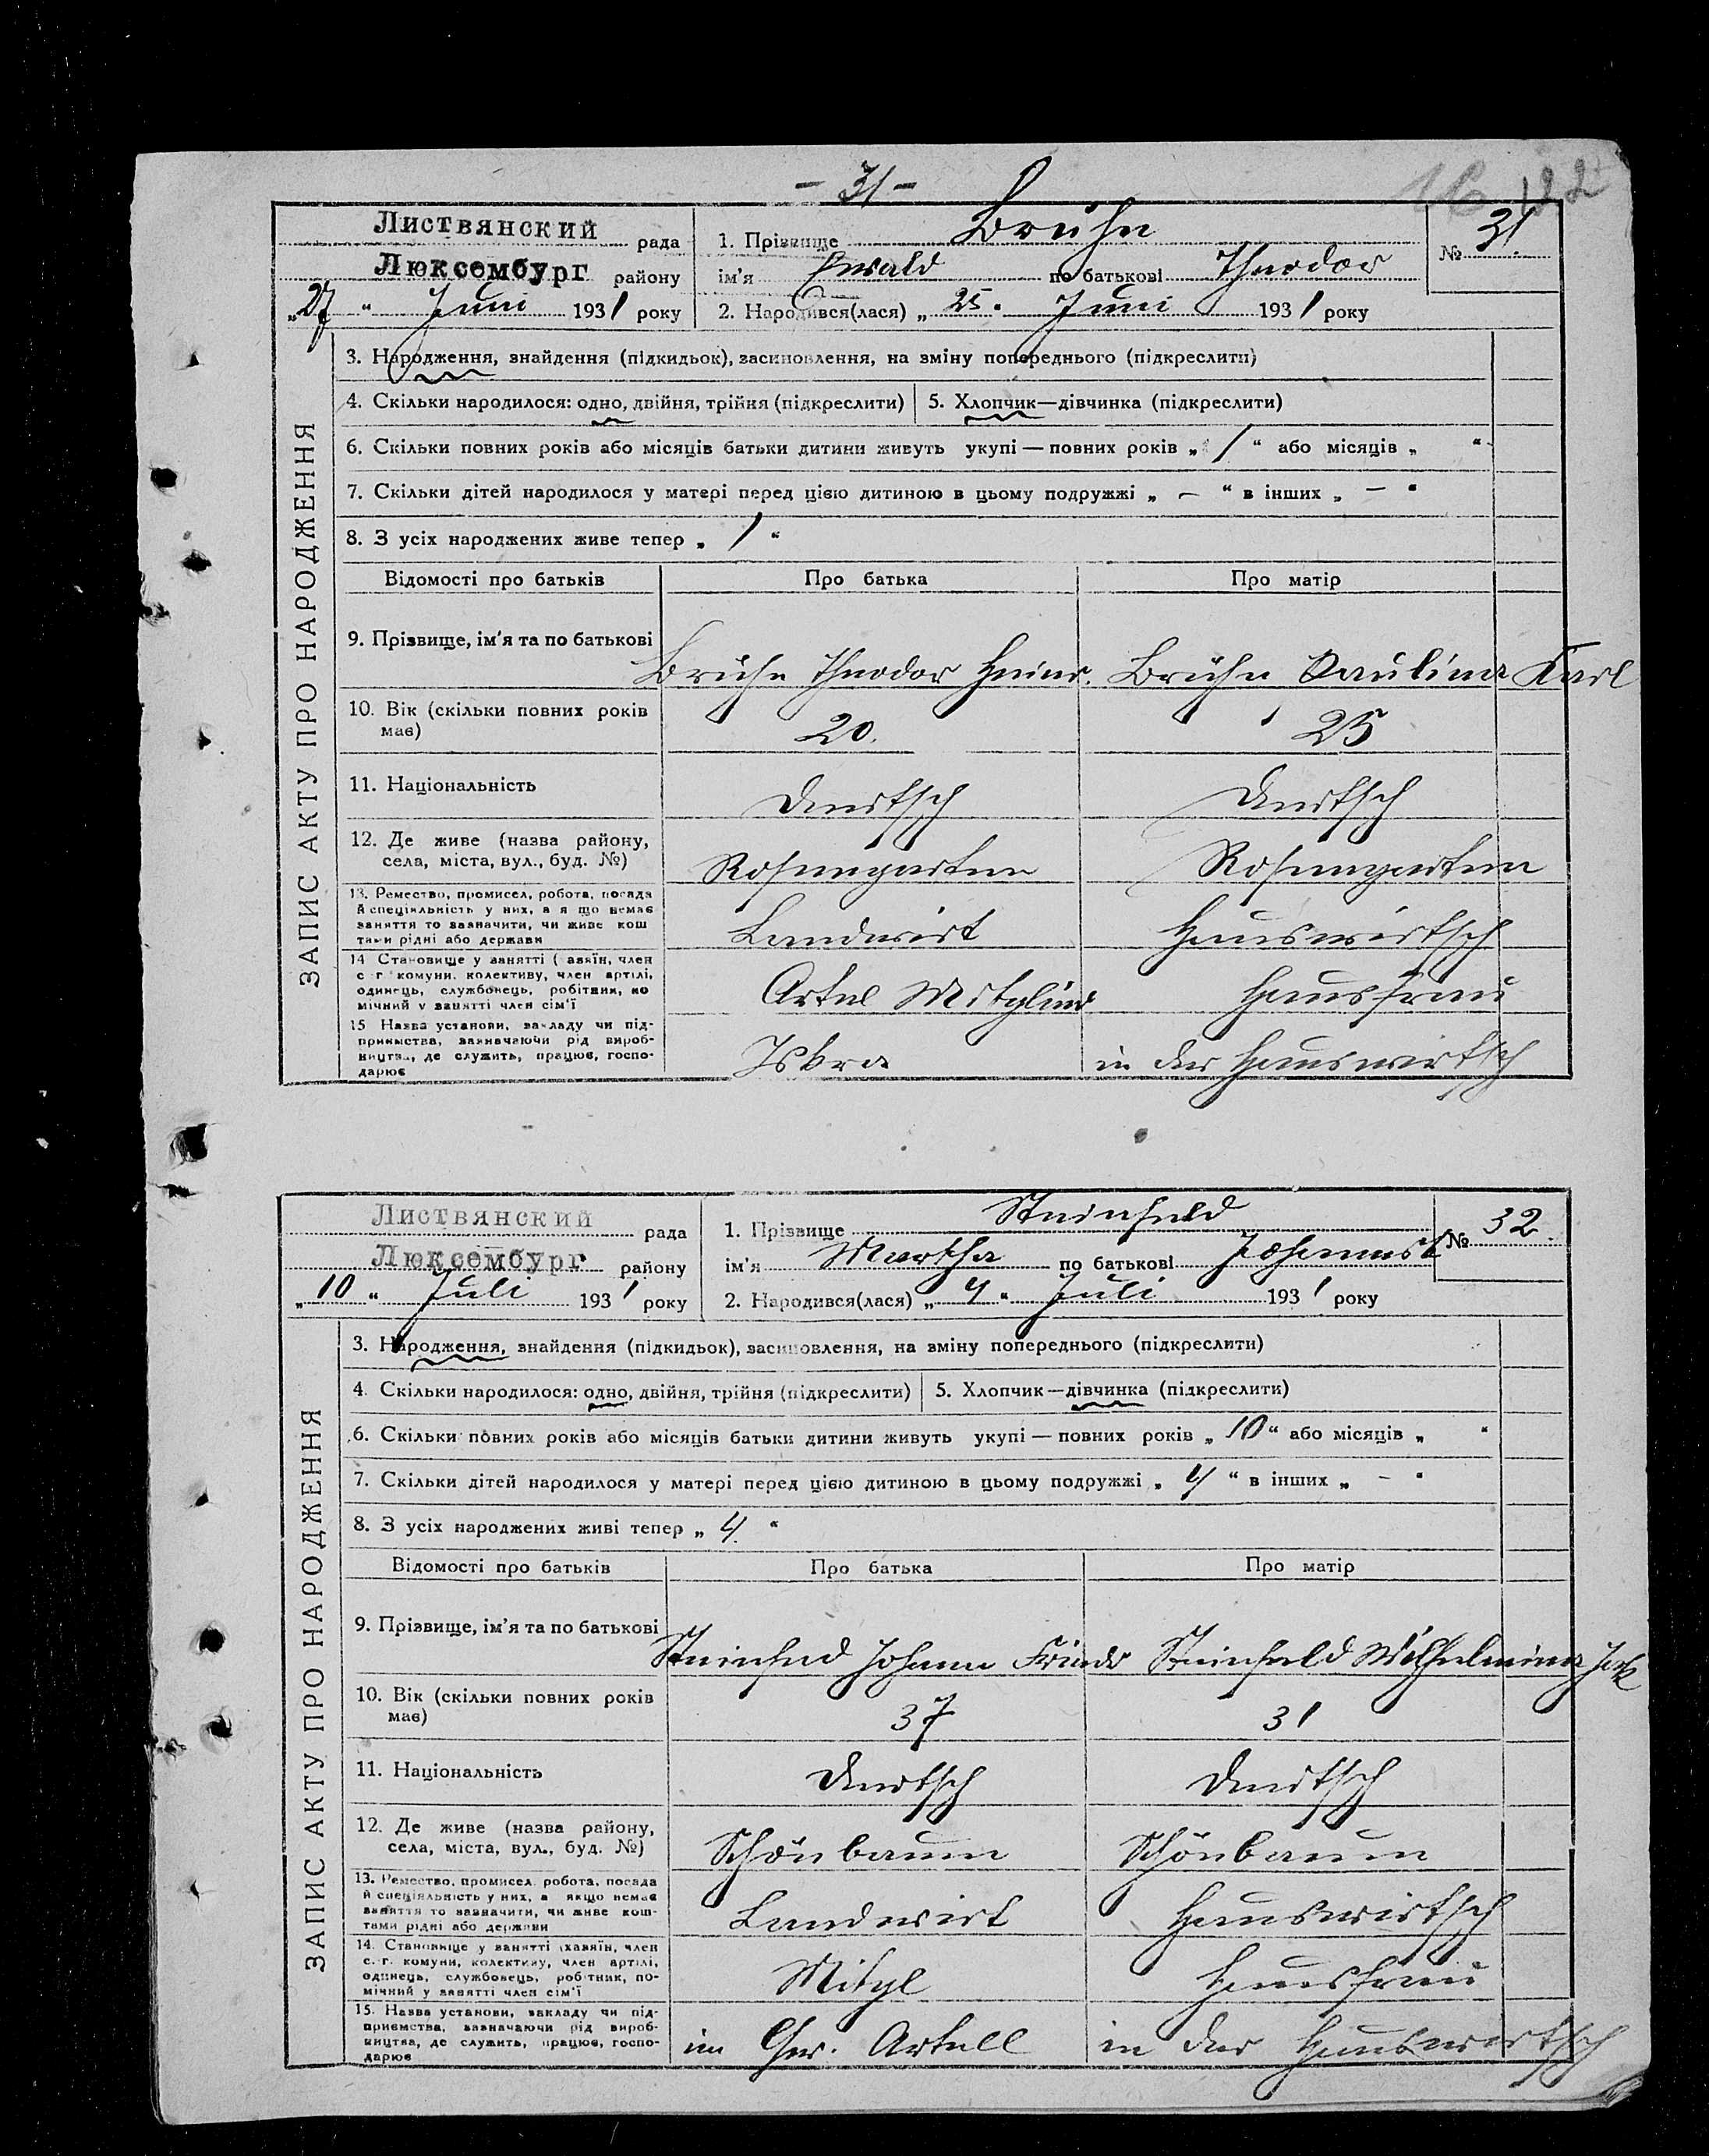 - 31 -
122
Листвянский рада
Люксембург району
„27“ Juni 1931 року
1. Прізвище Brühn
ім'я Ewald по батькові Theodor
2. Народився(лася) „25“ Juni 1931 року
№ 31.
ЗАПИС АКТУ ПРО НАРОДЖЕННЯ
3. Народження, знайдення (підкидьок), засиновлення, на зміну попереднього (підкреслити)
4. Скільки народилося: одно, двійня, трійня (підкреслити) 5. Хлопчик—дівчинка (підкреслити)
6. Скільки повних років або місяців батьки дитини живуть укупі — повних років „1“ або місяців „ “
7. Скільки дітей народилося у матері перед цією дитиною в цьому подружжі „ — “ в інших „ — “
8. З усіх народжених живе тепер „ 1 “
Відомості про батьків Про батька Про матір
9. Прізвище, ім'я та по батькові Brühn Theodor Heinr. Brühn Paulina Karl
10. Вік (скільки повних років має) 20. 25
11. Національність Deutsch Deutsch
12. Де живе (назва району, села, міста, вул., буд. №) Rosengarten Rosengarten
13. Ремество, промисел, робота, посада й спеціяльність у них, а я що немає заняття то зазначити, чи живе кош тами рідні або держави Landwirt Hauswirtsch
14 Становище у занятті (хазяїн, член с г комуни, колективу, член артілі, одинець, службовець, робітник, по мічний у занятті член сім'ї Artel Mitglied Hausfrau
15 Назва установи, закладу чи під-
приємства, зазначаючи рід вироб-
ництва, де служить, працює, госпо-
дарює Iskra in der Hauswirtsch
Листвянский рада
Люксембург району
„10“ Juli 1931 року
1. Прізвище Steinfeld
ім'я Martha по батькові Johannes
2. Народився(лася) „4“ Juli 1931 року
№ 32.
ЗАПИС АКТУ ПРО НАРОДЖЕННЯ
3. Народження, знайдення (підкидьок), засиновлення, на зміну попереднього (підкреслити)
4. Скільки народилося: одно, двійня, трійня (підкреслити) 5. Хлопчик—дівчинка (підкреслити)
6. Скільки повних років або місяців батьки дитини живуть укупі — повних років „10“ або місяців „ “
7. Скільки дітей народилося у матері перед цією дитиною в цьому подружжі „ 4 “ в інших „ – “
8. З усіх народжених живі тепер „ 4. “
Відомості про батьків Про батька Про матір
9. Прізвище, ім'я та по батькові Steinfeld Johann Friedr Steinfeld Wilhelmina
10. Вік (скільки повних років має) 37 31
11. Національність Deutsch Deutsch
12. Де живе (назва району, села, міста, вул., буд. №) Schönbaum Schönbaum
13. Ремество, промисел, робота, посада й спеціяльність у них, а якщо немає заняття то зазначити, чи живе кош-
тами рідні або держави Landwirt Hauswirtsch
14. Становище у занятті (хазяїн, член с. г. комуни, колективу, член артілі, одинець, службовець, робітник, по-
мічний у занятті член сім'ї Mitgl Hausfrau
15. Назва установи, закладу чи під-
приємства, зазначаючи рід вироб-
ництва, де служить, працює, госпо-
дарює im Artell in der Hauswirtsch